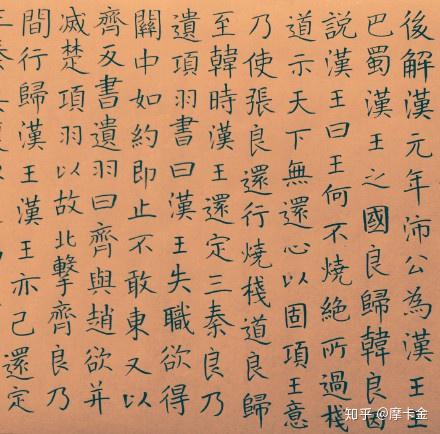 後解漢元年沛公為漢王王
巴蜀漢王之國良歸韓良因
説漢王曰王何不燒絕所過棧
道示天下無還心以固項王意
乃使張良還行燒棧道良歸
至韓時漢王還定三秦良乃
遺項羽書曰漢王失職欲得
關中如約即止不敢東又以
齊反書遺羽曰齊與趙欲并
滅楚項羽以故北擊齊良乃
間行歸漢王漢王亦已還定
知乎 @摩卡金